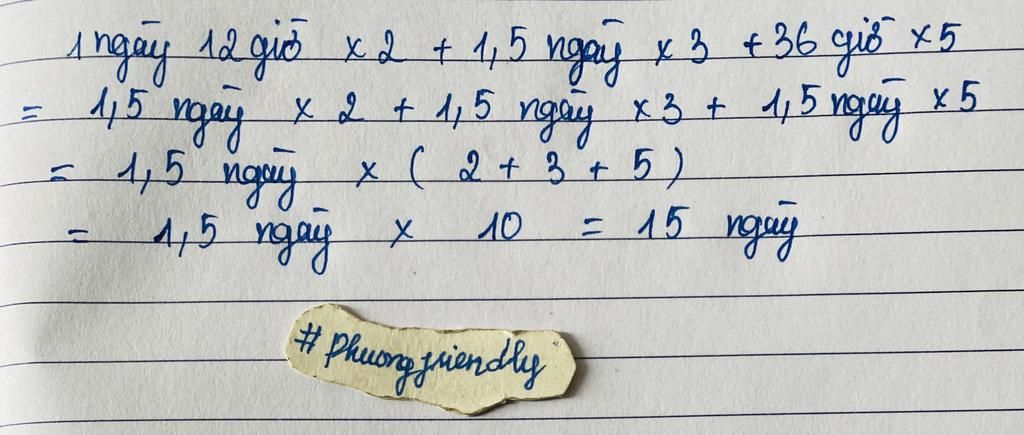 1 ngày 12 giờ x 2 + 1,5 ngày x 3 + 36 giờ x 5
= 1,5 ngày x 2 + 1,5 ngày x 3 + 1,5 ngày x 5
= 1,5 ngày x ( 2 + 3 + 5 )
= 1,5 ngày x 10 = 15 ngày
# phuongfriendly